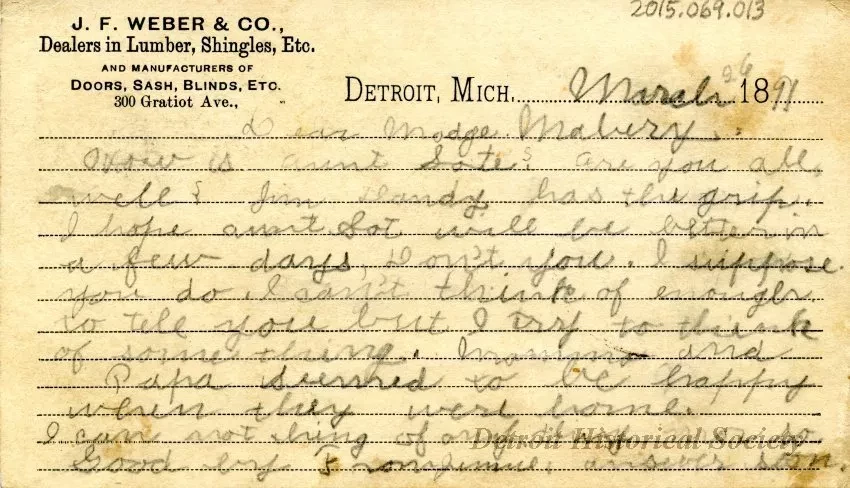 2015.069.013
J. F. WEBER & CO.,
Dealers in Lumber, Shingles, Etc.
AND MANUFACTURERS OF
DOORS, SASH, BLINDS, ETC.
300 Gratiot Ave.,
DETROIT, MICH. March 26 1891
Dear Madge Mabery.
How is aunt Sate? are you all
well? Jim Dandy has the grip.
I hope aunt Sat will be better in
a few days, Don't you. I suppose
you do. I can't think of enough
to tell you but I try to think
of some thing. Mamma and
Papa seemed to be happy
when they were home.
I can not thing of so
Good by From answer soon.
Detroit Historical Society